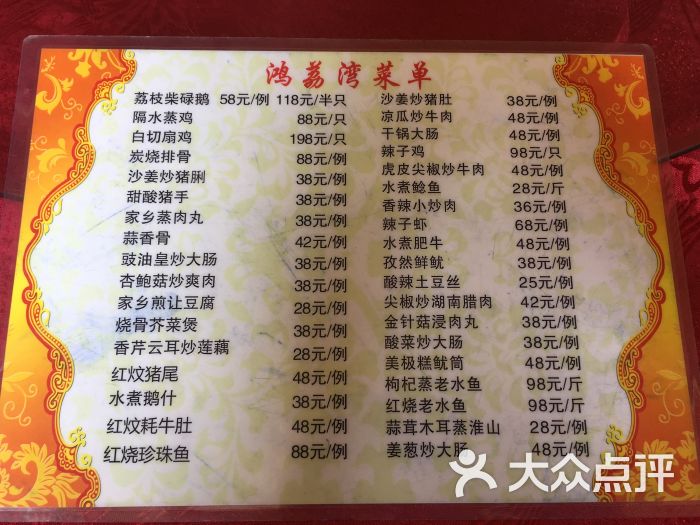 鸿荔湾菜单
荔枝柴碌鹅 58元/例 118元/半只
隔水蒸鸡 88元/只
白切扇鸡 198元/只
炭烧排骨 88元/例
沙姜炒猪脷 38元/例
甜酸猪手 38元/例
家乡蒸肉丸 38元/例
蒜香骨 42元/例
豉油皇炒大肠 38元/例
杏鲍菇炒爽肉 38元/例
家乡煎让豆腐 28元/例
烧骨芥菜煲 38元/例
香芹云耳炒莲藕 28元/例
红炆猪尾 48元/例
水煮鹅什 38元/例
红炆耗牛肚 48元/例
红烧珍珠鱼 88元/例
沙姜炒猪肚 38元/例
凉瓜炒牛肉 48元/例
干锅大肠 48元/例
辣子鸡 98元/只
虎皮尖椒炒牛肉 48元/例
水煮鲶鱼 28元/斤
香辣小炒肉 36元/例
辣子虾 68元/例
水煮肥牛 48元/例
孜然鲜鱿 38元/例
酸辣土豆丝 25元/例
尖椒炒湖南腊肉 42元/例
金针菇浸肉丸 38元/例
酸菜炒大肠 38元/例
美极糕鱿筒 48元/例
枸杞蒸老水鱼 98元/斤
红烧老水鱼 98元/斤
蒜茸木耳蒸淮山 28元/例
姜葱炒大肠 48元/例
大众点评